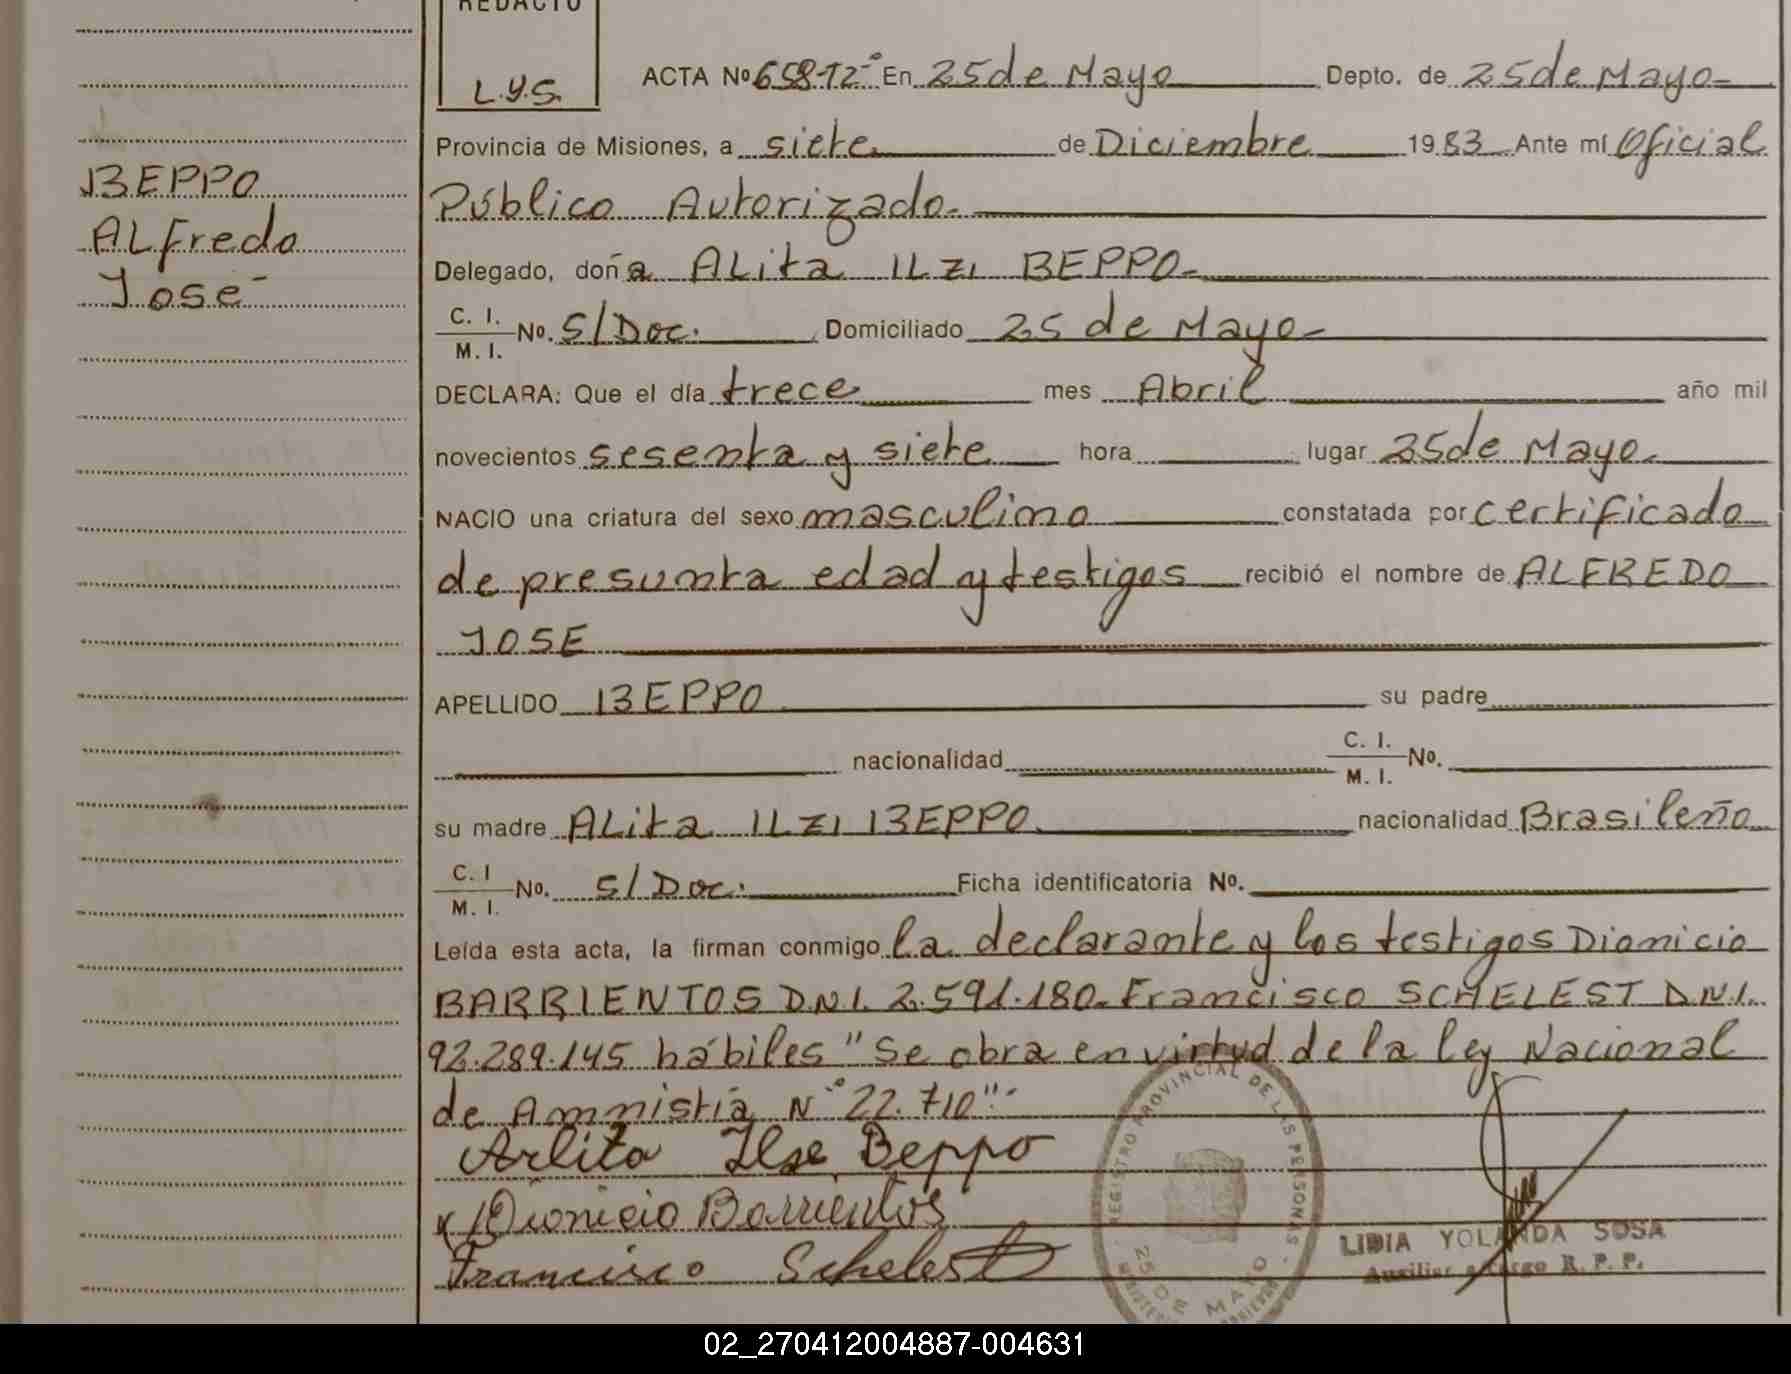 REDACTO
L.Y.S.
BEPPO
ALfredo
José
ACTA Nº 658-Tº En 25 de Mayo Depto. de 25 de Mayo
Provincia de Misiones, a siete de Diciembre 1983 Ante mí Oficial
Público Autorizado.
Delegado, doña ALita ILZI BEPPO
C. I.
M. I. No. S/Doc. Domiciliado 25 de Mayo
DECLARA: Que el día trece mes Abril año mil
novecientos sesenta y siete hora lugar 25 de Mayo
NACIO una criatura del sexo masculino constatada por certificado
de presunta edad y testigos recibió el nombre de ALFREDO
JOSE
APELLIDO BEPPO su padre
nacionalidad C. I.
M. I. No.
su madre ALita ILZI BEPPO nacionalidad Brasileño
C. I
M. I. No. S/Doc. Ficha identificatoria No.
Leída esta acta, la firman conmigo la declarante y los testigos Dionicio
BARRIENTOS D.N.I. 2.591.180. Francisco SCHELEST D.N.I.
92.289.145 hábiles "Se obra en virtud de la ley Nacional
de Amnistía Nº 22.710"
Arlita Ilse Beppo
Dionicio Barrientos
Francisco Schelest
REGISTRO PROVINCIAL DE LAS PERSONAS
25 DE MAYO
LIDIA YOLANDA SOSA
Auxiliar a Cargo R. P. P.
02_270412004887-004631